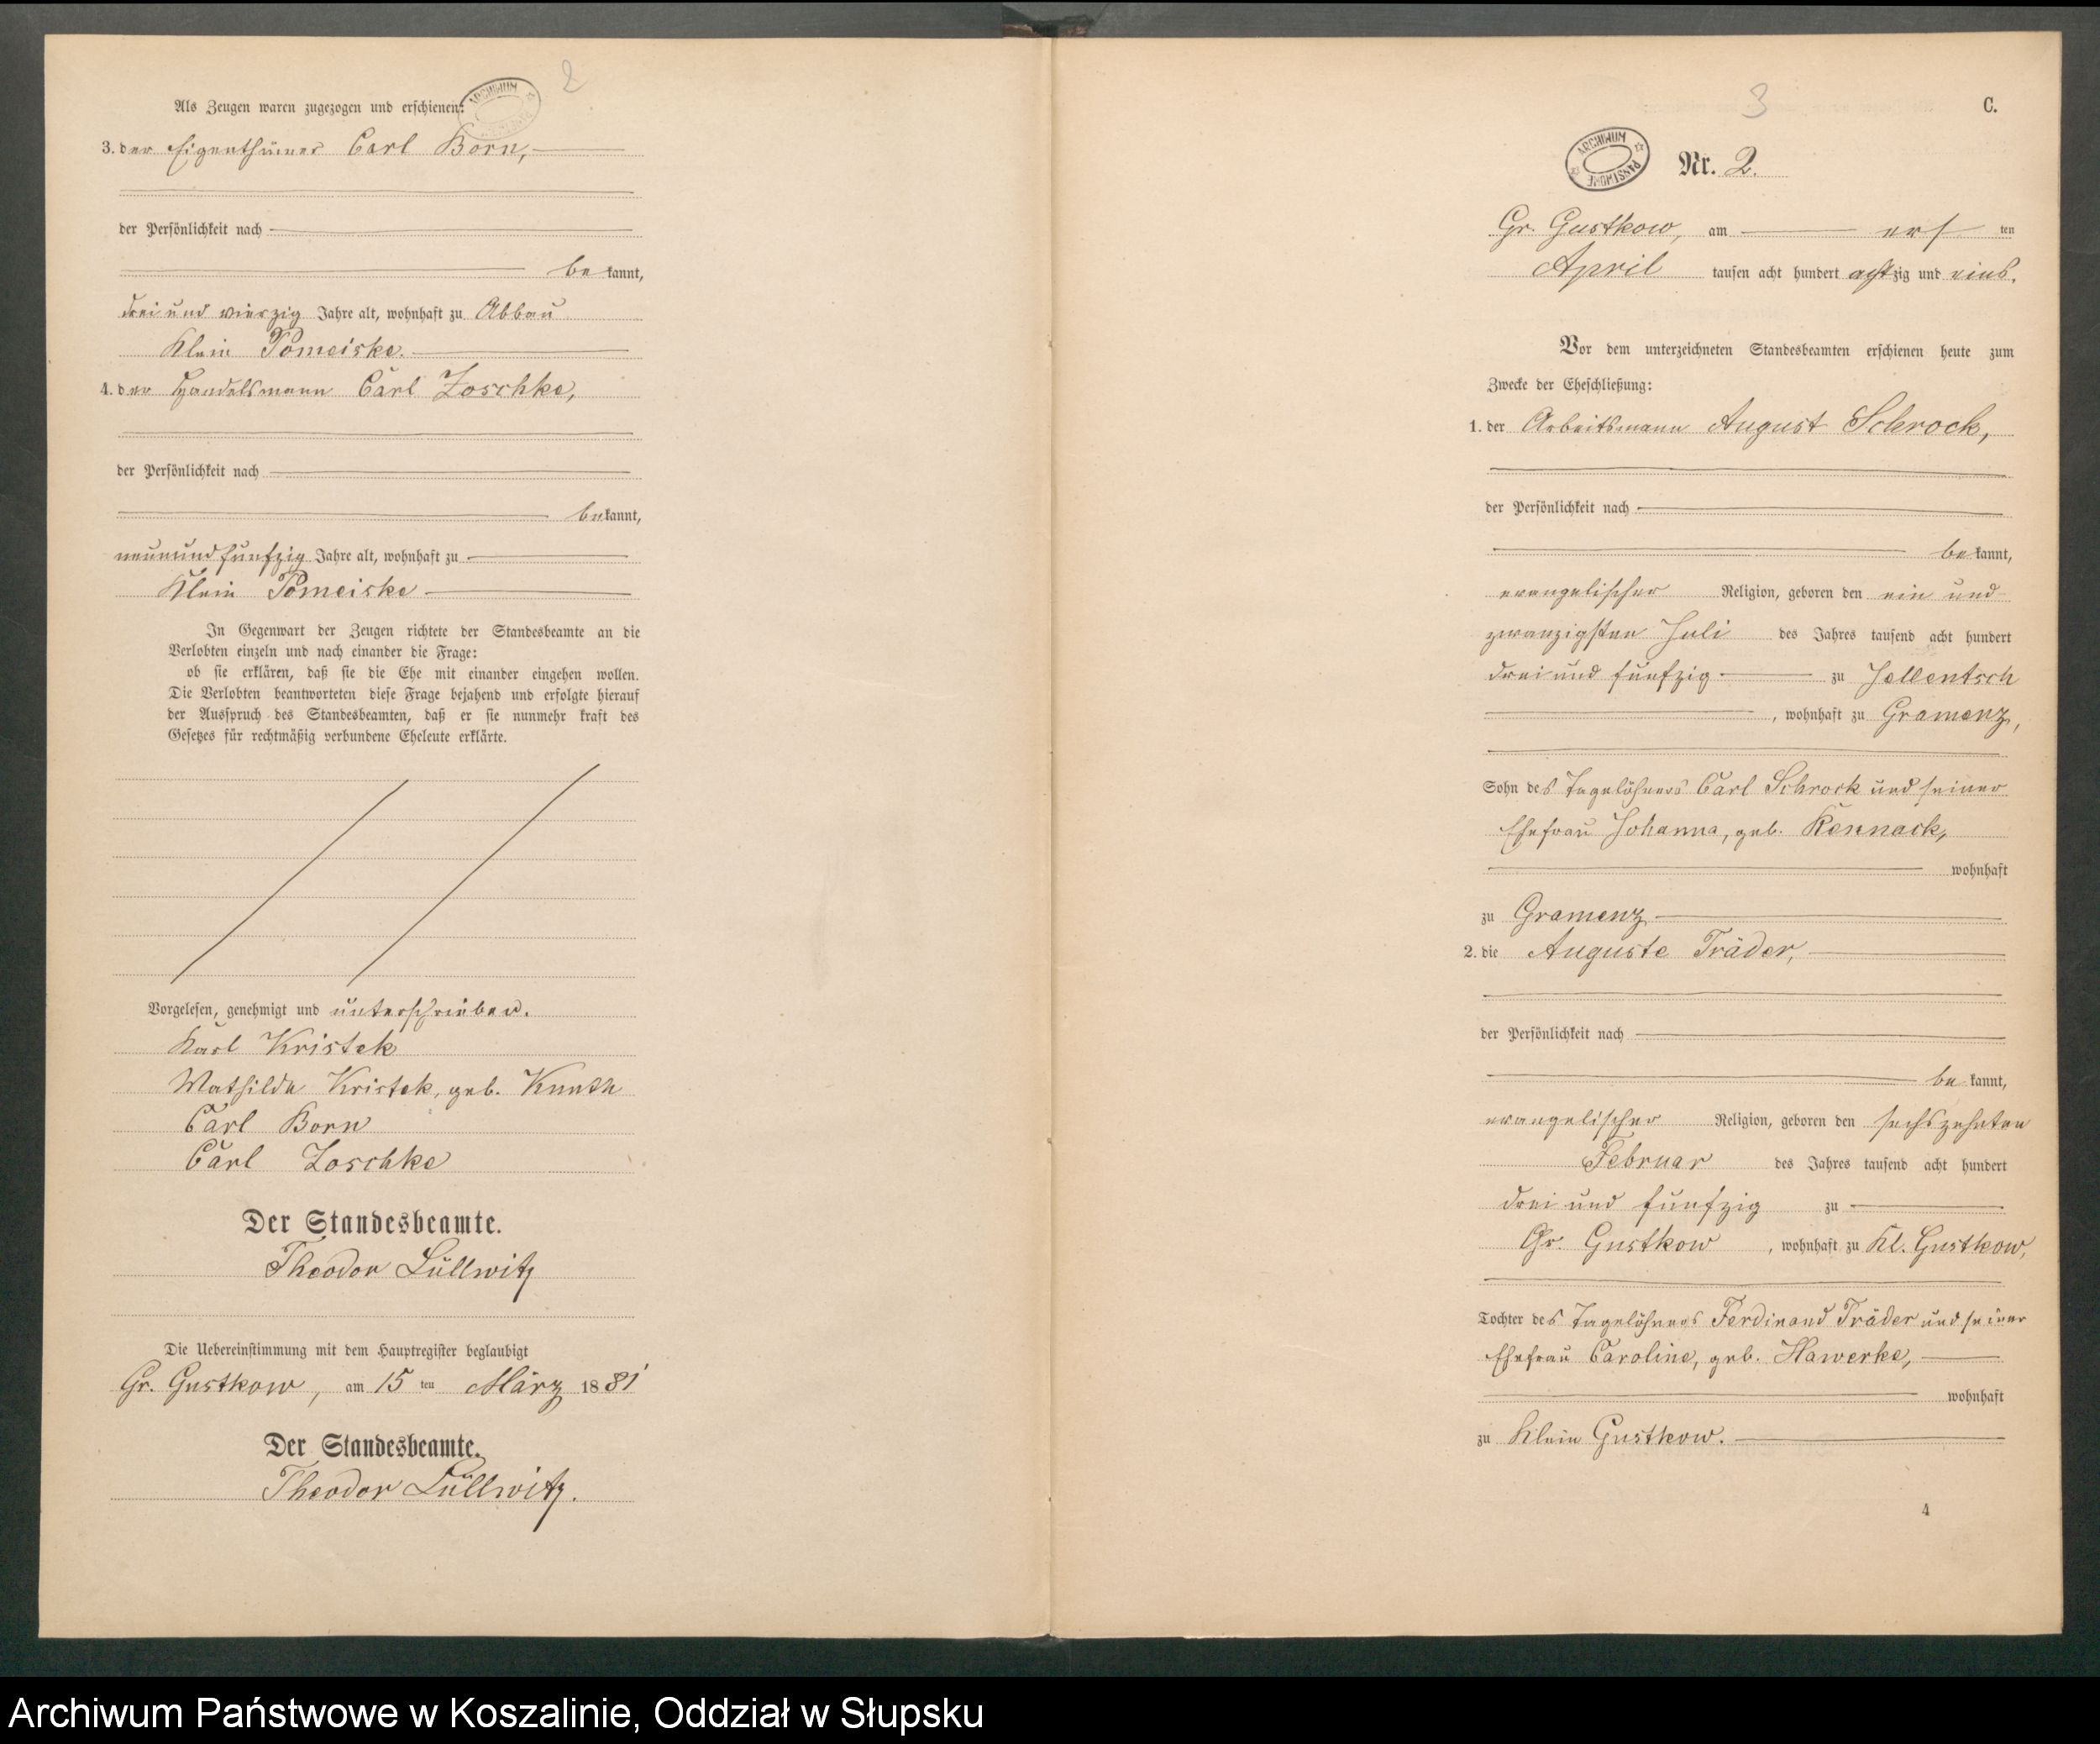 2
ARCHIWUM PAŃSTWOWE
Als Zeugen waren zugezogen und erschienen:
3. der Eigenthümer Carl Born,
der Persönlichkeit nach
bekannt,
drei und vierzig Jahre alt, wohnhaft zu Abbau
Klein Pomeiske.
4. der Handelsmann Carl Zoschke,
der Persönlichkeit nach
bekannt,
neunundfünfzig Jahre alt, wohnhaft zu
Klein Pomeiske
In Gegenwart der Zeugen richtete der Standesbeamte an die
Verlobten einzeln und nach einander die Frage:
ob sie erklären, daß sie die Ehe mit einander eingehen wollen.
Die Verlobten beantworteten diese Frage bejahend und erfolgte hierauf
der Ausspruch des Standesbeamten, daß er sie nunmehr kraft des
Gesetzes für rechtmäßig verbundene Eheleute erklärte.
Vorgelesen, genehmigt und unterschrieben.
Karl Kristek
Mathilde Kristek, geb. Kunth
Carl Born
Carl Zoschke
Der Standesbeamte.
Theodor Lüllwitz
Die Uebereinstimmung mit dem Hauptregister beglaubigt
Gr. Gustkow, am 15 ten März 1881
Der Standesbeamte.
Theodor Lüllwitz.
3
C.
ARCHIWUM PAŃSTWOWE
Nr. 2.
Gr. Gustkow, am erst ten
April tausen acht hundert achtzig und eins.
Vor dem unterzeichneten Standesbeamten erschienen heute zum
Zwecke der Eheschließung:
1. der Arbeitsmann August Schrock,
der Persönlichkeit nach
bekannt,
evangelischer Religion, geboren den ein und
zwanzigsten Juli des Jahres tausend acht hundert
drei und fünfzig zu Jellentsch
, wohnhaft zu Gramenz,
Sohn des Tagelöhners Carl Schrock und seiner
Ehefrau Johanna, geb. Kennack,
wohnhaft
zu Gramenz
2. die Auguste Träder,
der Persönlichkeit nach
bekannt,
evangelischer Religion, geboren den sechszehnten
Februar des Jahres tausend acht hundert
drei und fünfzig zu
Gr. Gustkow, wohnhaft zu Kl. Gustkow,
Tochter des Tagelöhners Ferdinand Träder und seiner
Ehefrau Caroline, geb. Hawerke,
wohnhaft
zu Klein Gustkow.
4
Archiwum Państwowe w Koszalinie, Oddział w Słupsku